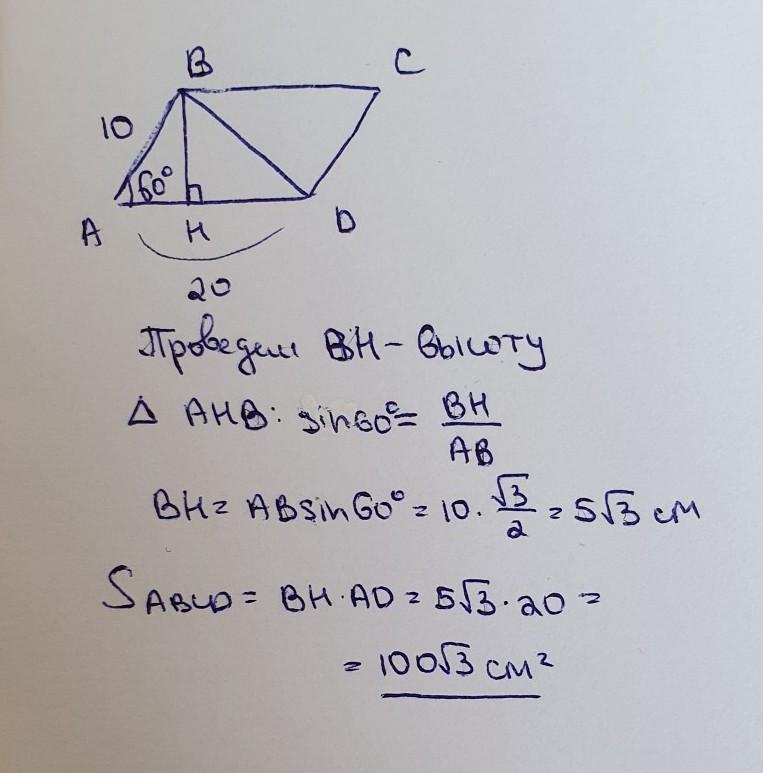 B C
10
60°
A H D
20
Проведем BH – высоту
Δ AHB: sin60° = BH/AB
BH = ABsin60° = 10 · √3/2 = 5√3 см
SABCD = BH · AD = 5√3 · 20 =
= 100√3 см²